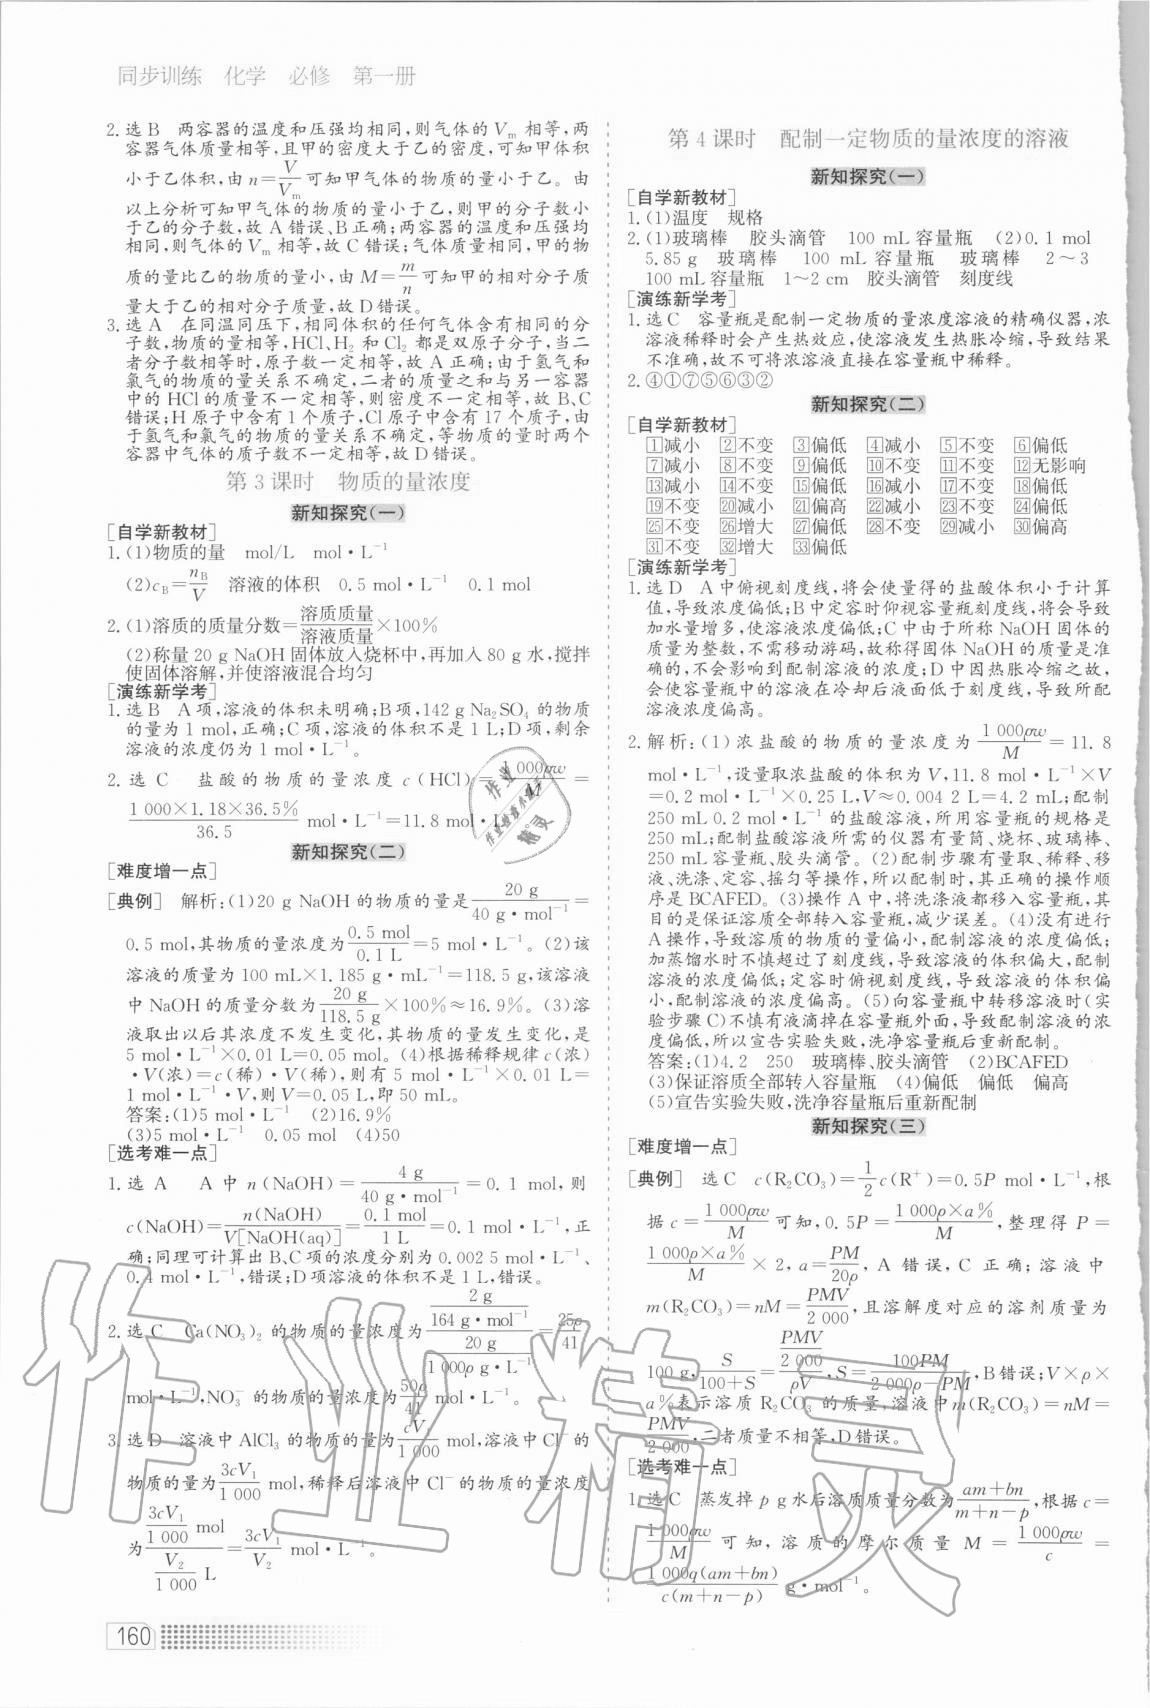 同步训练 化学 必修 第一册
2. 选B 两容器的温度和压强均相同,则气体的Vm相等,两
容器气体质量相等,且甲的密度大于乙的密度,可知甲体积
小于乙体积,由n=V/Vm可知甲气体的物质的量小于乙。由
以上分析可知甲气体的物质的量小于乙,则甲的分子数小
于乙的分子数,故A错误、B正确;两容器的温度和压强均
相同,则气体的Vm相等,故C错误;气体质量相同,甲的物
质的量比乙的物质的量小,由M=m/n可知甲的相对分子质
量大于乙的相对分子质量,故D错误。
3. 选A 在同温同压下,相同体积的任何气体含有相同的分
子数,物质的量相等,HCl、H₂和Cl₂都是双原子分子,当二
者分子数相等时,原子数一定相等,故A正确;由于氢气和
氯气的物质的量关系不确定,二者的质量之和与另一容器
中的HCl的质量不一定相等,则密度不一定相等,故B、C
错误;H原子中含有1个质子,Cl原子中含有17个质子,由
于氢气和氯气的物质的量关系不确定,等物质的量时两个
容器中气体的质子数不一定相等,故D错误。
第3课时 物质的量浓度
新知探究(一)
[自学新教材]
1. (1)物质的量 mol/L mol·L⁻¹
(2)c_B=n_B/V 溶液的体积 0.5 mol·L⁻¹ 0.1 mol
2. (1)溶质的质量分数=溶质质量/溶液质量×100%
(2)称量20 g NaOH固体放入烧杯中,再加入80 g水,搅拌
使固体溶解,并使溶液混合均匀
[演练新学考]
1. 选B A项,溶液的体积未明确;B项,142 g Na₂SO₄的物质
的量为1 mol,正确;C项,溶液的体积不是1 L;D项,剩余
溶液的浓度仍为1 mol·L⁻¹。
2. 选C 盐酸的物质的量浓度c(HCl)=1 000ρw/M=
1 000×1.18×36.5%/36.5 mol·L⁻¹=11.8 mol·L
新知探究(二)
[难度增一点]
[典例] 解析:(1)20 g NaOH的物质的量是20 g/40 g·mol⁻¹=
0.5 mol,其物质的量浓度为0.5 mol/0.1 L=5 mol·L⁻¹。(2)该
溶液的质量为100 mL×1.185 g·mL⁻¹=118.5 g,该溶液
中NaOH的质量分数为20 g/118.5 g×100%≈16.9%。(3)溶
液取出以后其浓度不发生变化,其物质的量发生变化,是
5 mol·L⁻¹×0.01 L=0.05 mol。(4)根据稀释规律c(浓)
·V(浓)=c(稀)·V(稀),则有5 mol·L⁻¹×0.01 L=
1 mol·L⁻¹·V,则V=0.05 L,即50 mL。
答案:(1)5 mol·L⁻¹ (2)16.9%
(3)5 mol·L⁻¹ 0.05 mol (4)50
[选考难一点]
1. 选A A中n(NaOH)=4 g/40 g·mol⁻¹=0.1 mol,则
c(NaOH)=n(NaOH)/V[NaOH(aq)]=0.1 mol/1 L=0.1 mol·L⁻¹,正
确;同理可计算出B、C项的浓度分别为0.002 5 mol·L⁻¹、
0.4 mol·L⁻¹,错误;D项溶液的体积不是1 L,错误。
2. 选C Ca(NO₃)₂的物质的量浓度为(2 g/164 g·mol⁻¹)/(20 g/1 000ρ g·L⁻¹)=25ρ/41
mol·L⁻¹,NO₃⁻的物质的量浓度为50ρ/41 mol·L⁻¹。
3. 选D 溶液中AlCl₃的物质的量为cV/1 000 mol,溶液中Cl⁻的
物质的量为3cV₁/1 000 mol,稀释后溶液中Cl⁻的物质的量浓度
为(3cV₁/1 000 mol)/(V₂/1 000 L)=3cV₁/V₂ mol·L⁻¹。
160
第4课时 配制一定物质的量浓度的溶液
新知探究(一)
[自学新教材]
1. (1)温度 规格
2. (1)玻璃棒 胶头滴管 100 mL容量瓶 (2)0.1 mol
5.85 g 玻璃棒 100 mL容量瓶 玻璃棒 2~3
100 mL容量瓶 1~2 cm 胶头滴管 刻度线
[演练新学考]
1. 选C 容量瓶是配制一定物质的量浓度溶液的精确仪器,浓
溶液稀释时会产生热效应,使溶液发生热胀冷缩,导致结果
不准确,故不可将浓溶液直接在容量瓶中稀释。
2. ④①⑦⑤⑥③②
新知探究(二)
[自学新教材]
1减小 2不变 3偏低 4减小 5不变 6偏低
7减小 8不变 9偏低 10不变 11不变 12无影响
13减小 14不变 15偏低 16减小 17不变 18偏低
19不变 20减小 21偏高 22减小 23不变 24偏低
25不变 26增大 27偏低 28不变 29减小 30偏高
31不变 32增大 33偏低
[演练新学考]
1. 选D A中俯视刻度线,将会使量得的盐酸体积小于计算
值,导致浓度偏低;B中定容时仰视容量瓶刻度线,将会导致
加水量增多,使溶液浓度偏低;C中由于所称NaOH固体的
质量为整数,不需移动游码,故称得固体NaOH的质量是准
确的,不会影响到配制溶液的浓度;D中因热胀冷缩之故,
会使容量瓶中的溶液在冷却后液面低于刻度线,导致所配
溶液浓度偏高。
2. 解析:(1)浓盐酸的物质的量浓度为1 000ρw/M=11.8
mol·L⁻¹,设量取浓盐酸的体积为V,11.8 mol·L⁻¹×V
=0.2 mol·L⁻¹×0.25 L,V≈0.004 2 L=4.2 mL;配制
250 mL 0.2 mol·L⁻¹的盐酸溶液,所用容量瓶的规格是
250 mL;配制盐酸溶液所需的仪器有量筒、烧杯、玻璃棒、
250 mL容量瓶、胶头滴管。(2)配制步骤有量取、稀释、移
液、洗涤、定容、摇匀等操作,所以配制时,其正确的操作顺
序是BCAFED。(3)操作A中,将洗涤液都移入容量瓶,其
目的是保证溶质全部转入容量瓶,减少误差。(4)没有进行
A操作,导致溶质的物质的量偏小,配制溶液的浓度偏低;
加蒸馏水时不慎超过了刻度线,导致溶液的体积偏大,配制
溶液的浓度偏低;定容时俯视刻度线,导致溶液的体积偏
小,配制溶液的浓度偏高。(5)向容量瓶中转移溶液时(实
验步骤C)不慎有液滴掉在容量瓶外面,导致配制溶液的浓
度偏低,所以宣告实验失败,洗净容量瓶后重新配制。
答案:(1)4.2 250 玻璃棒、胶头滴管 (2)BCAFED
(3)保证溶质全部转入容量瓶 (4)偏低 偏低 偏高
(5)宣告实验失败,洗净容量瓶后重新配制
新知探究(三)
[难度增一点]
[典例] 选C c(R₂CO₃)=1/2c(R⁺)=0.5P mol·L⁻¹,根
据c=1 000ρw/M可知,0.5P=1 000ρ×a%/M,整理得P=
1 000ρ×a%/M×2,a=PM/20ρ,A错误,C正确;溶液中
m(R₂CO₃)=nM=PMV/2 000,且溶解度对应的溶剂质量为
100 g,S/100+S=(PMV/2 000)/ρV,S=100PM/2 000ρ-PM,B错误;V×ρ×
a%表示溶质R₂CO₃的质量,溶液中m(R₂CO₃)=nM=
PMV/2 000,二者质量不相等,D错误。
[选考难一点]
1. 选C 蒸发掉p g水后溶质质量分数为am+bn/m+n-p,根据c=
1 000ρw/M可知,溶质的摩尔质量M=1 000ρw/c=
1 000q(am+bn)/c(m+n-p) g·mol⁻¹。
作业精灵
作业
精灵